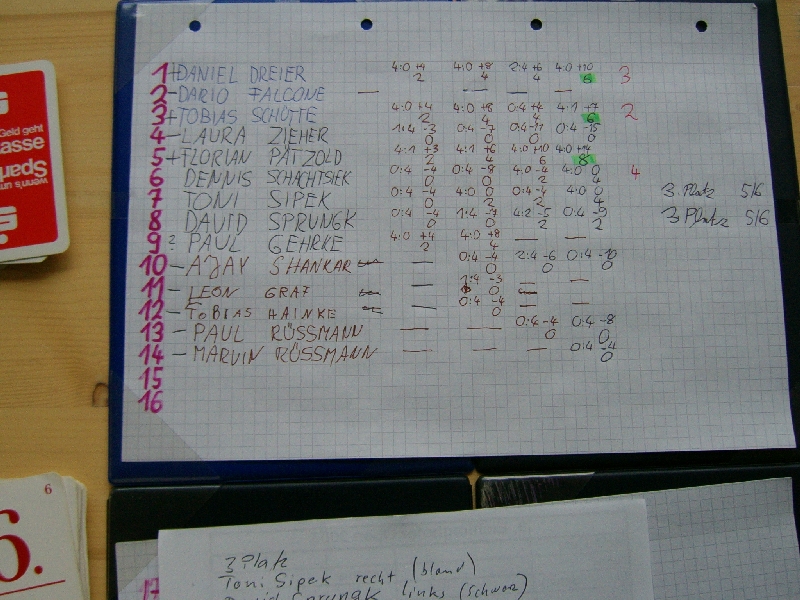 1 + DANIEL DREIER 4:0 +4 4:0 +8 2:4 +6 4:0 +10 3
2 4 4 6
2 – DARIO FALCONE — — — —
3 + TOBIAS SCHÜTTE 4:0 +4 4:0 +8 0:4 +4 4:1 +7 2
2 4 4 6
4 – LAURA ZIEHER 1:4 -3 0:4 -7 0:4 -11 0:4 -15
0 0 0 0
5 + FLORIAN PÄTZOLD 4:1 +3 4:1 +6 4:0 +10 4:0 +14
2 4 6 8
6 DENNIS SCHACHTSIEK 0:4 -4 0:4 -8 4:0 -4 4:0 0 4
0 0 2 4
7 TONI SIPEK 0:4 -4 4:0 0 0:4 -4 4:0 0 3. Platz 5/6
0 2 2 4
8 DAVID SPRUNGK 0:4 -4 1:4 -7 4:2 -5 0:4 -9 3. Platz 5/6
0 0 2 2
9 ? PAUL GEHRKE 4:0 +4 4:0 +8 — —
2 4
10 – AJAY SHANKAR — 0:4 -4 2:4 -6 0:4 -10
0 0 0
11 – LEON GRAF — 1:4 -3 — —
0
12 – TOBIAS HAINKE — 0:4 -4 — —
0
13 – PAUL RÜSSMANN — — 0:4 -4 0:4 -8
0 0
14 – MARVIN RÜSSMANN — — — 0:4 -4
0
15
16
Geld geht
wenn's um
Spar
asse
6
6.
17
3 Platz
Toni Sipek recht (blond)
David Sprungk links (schwarz)